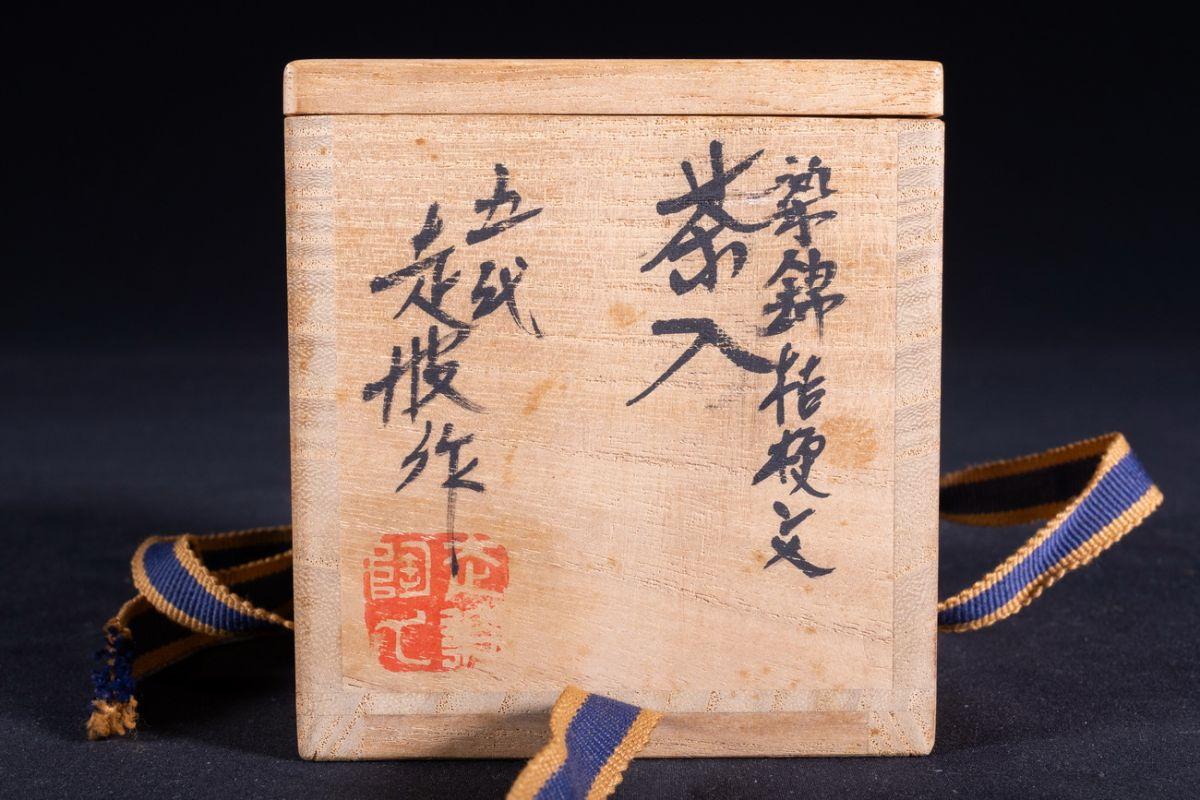 染錦桔梗文
茶入
五代
作
陶